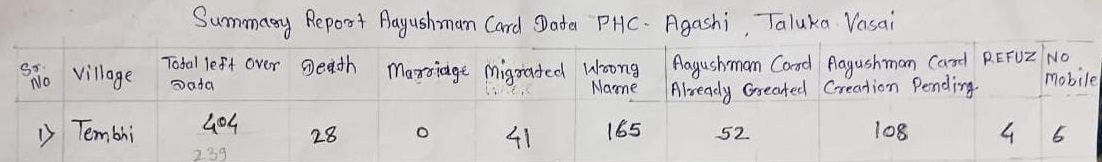 Summary Report Aayushman Card Data PHC - Agashi, Taluka Vasai
Sr. No Village Total left over Data Death Marriage Migrated Wrong Name Aayushman Card Already Created Aayushman Card Creation Pending REFUZ NO Mobile
1) Tembhi 404 28 0 41 165 52 108 4 6
239